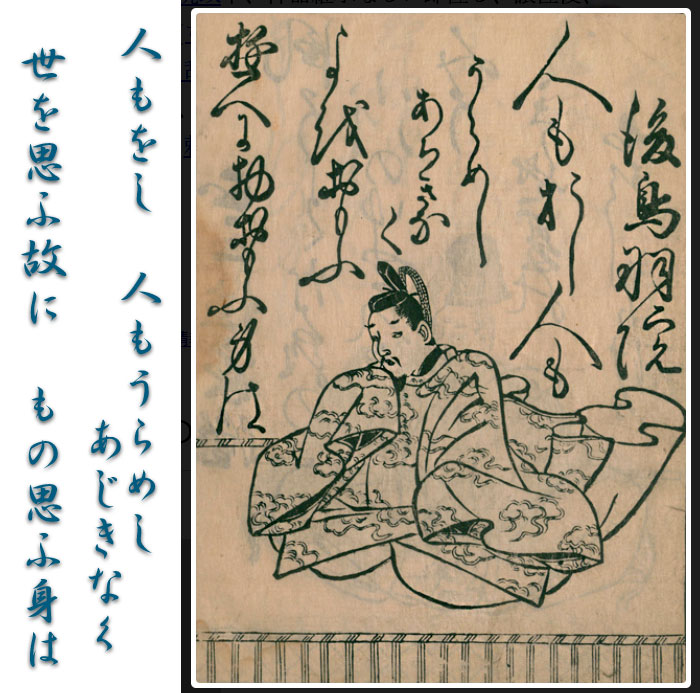 後鳥羽院
人もおし人も
うらめし
あちきなく
よをおもふ
ゆへに物おもふ身は
人もをし 人もうらめし
あじきなく
世を思ふ故に もの思ふ身は